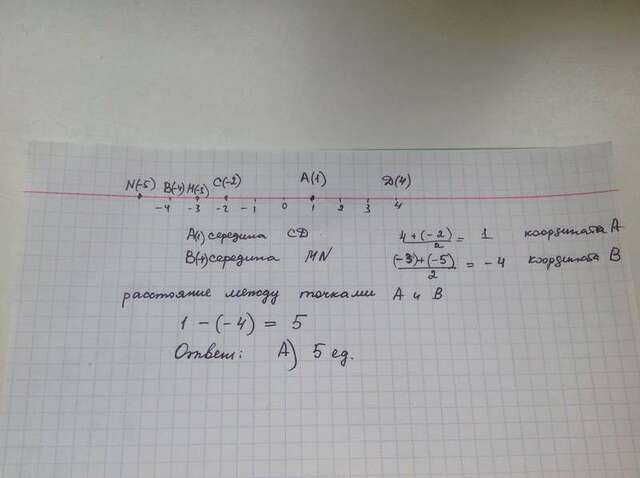 N(-5) B(-4) M(-3) C(-2) A(1) D(4)
-4 -3 -2 -1 0 1 2 3 4
A(1) середина CD 4+(-2)/2 = 1 координата A
B(-4) середина MN (-3)+(-5)/2 = -4 координата B
расстояние между точками A и B
1 - (-4) = 5
Ответ: A) 5 ед.